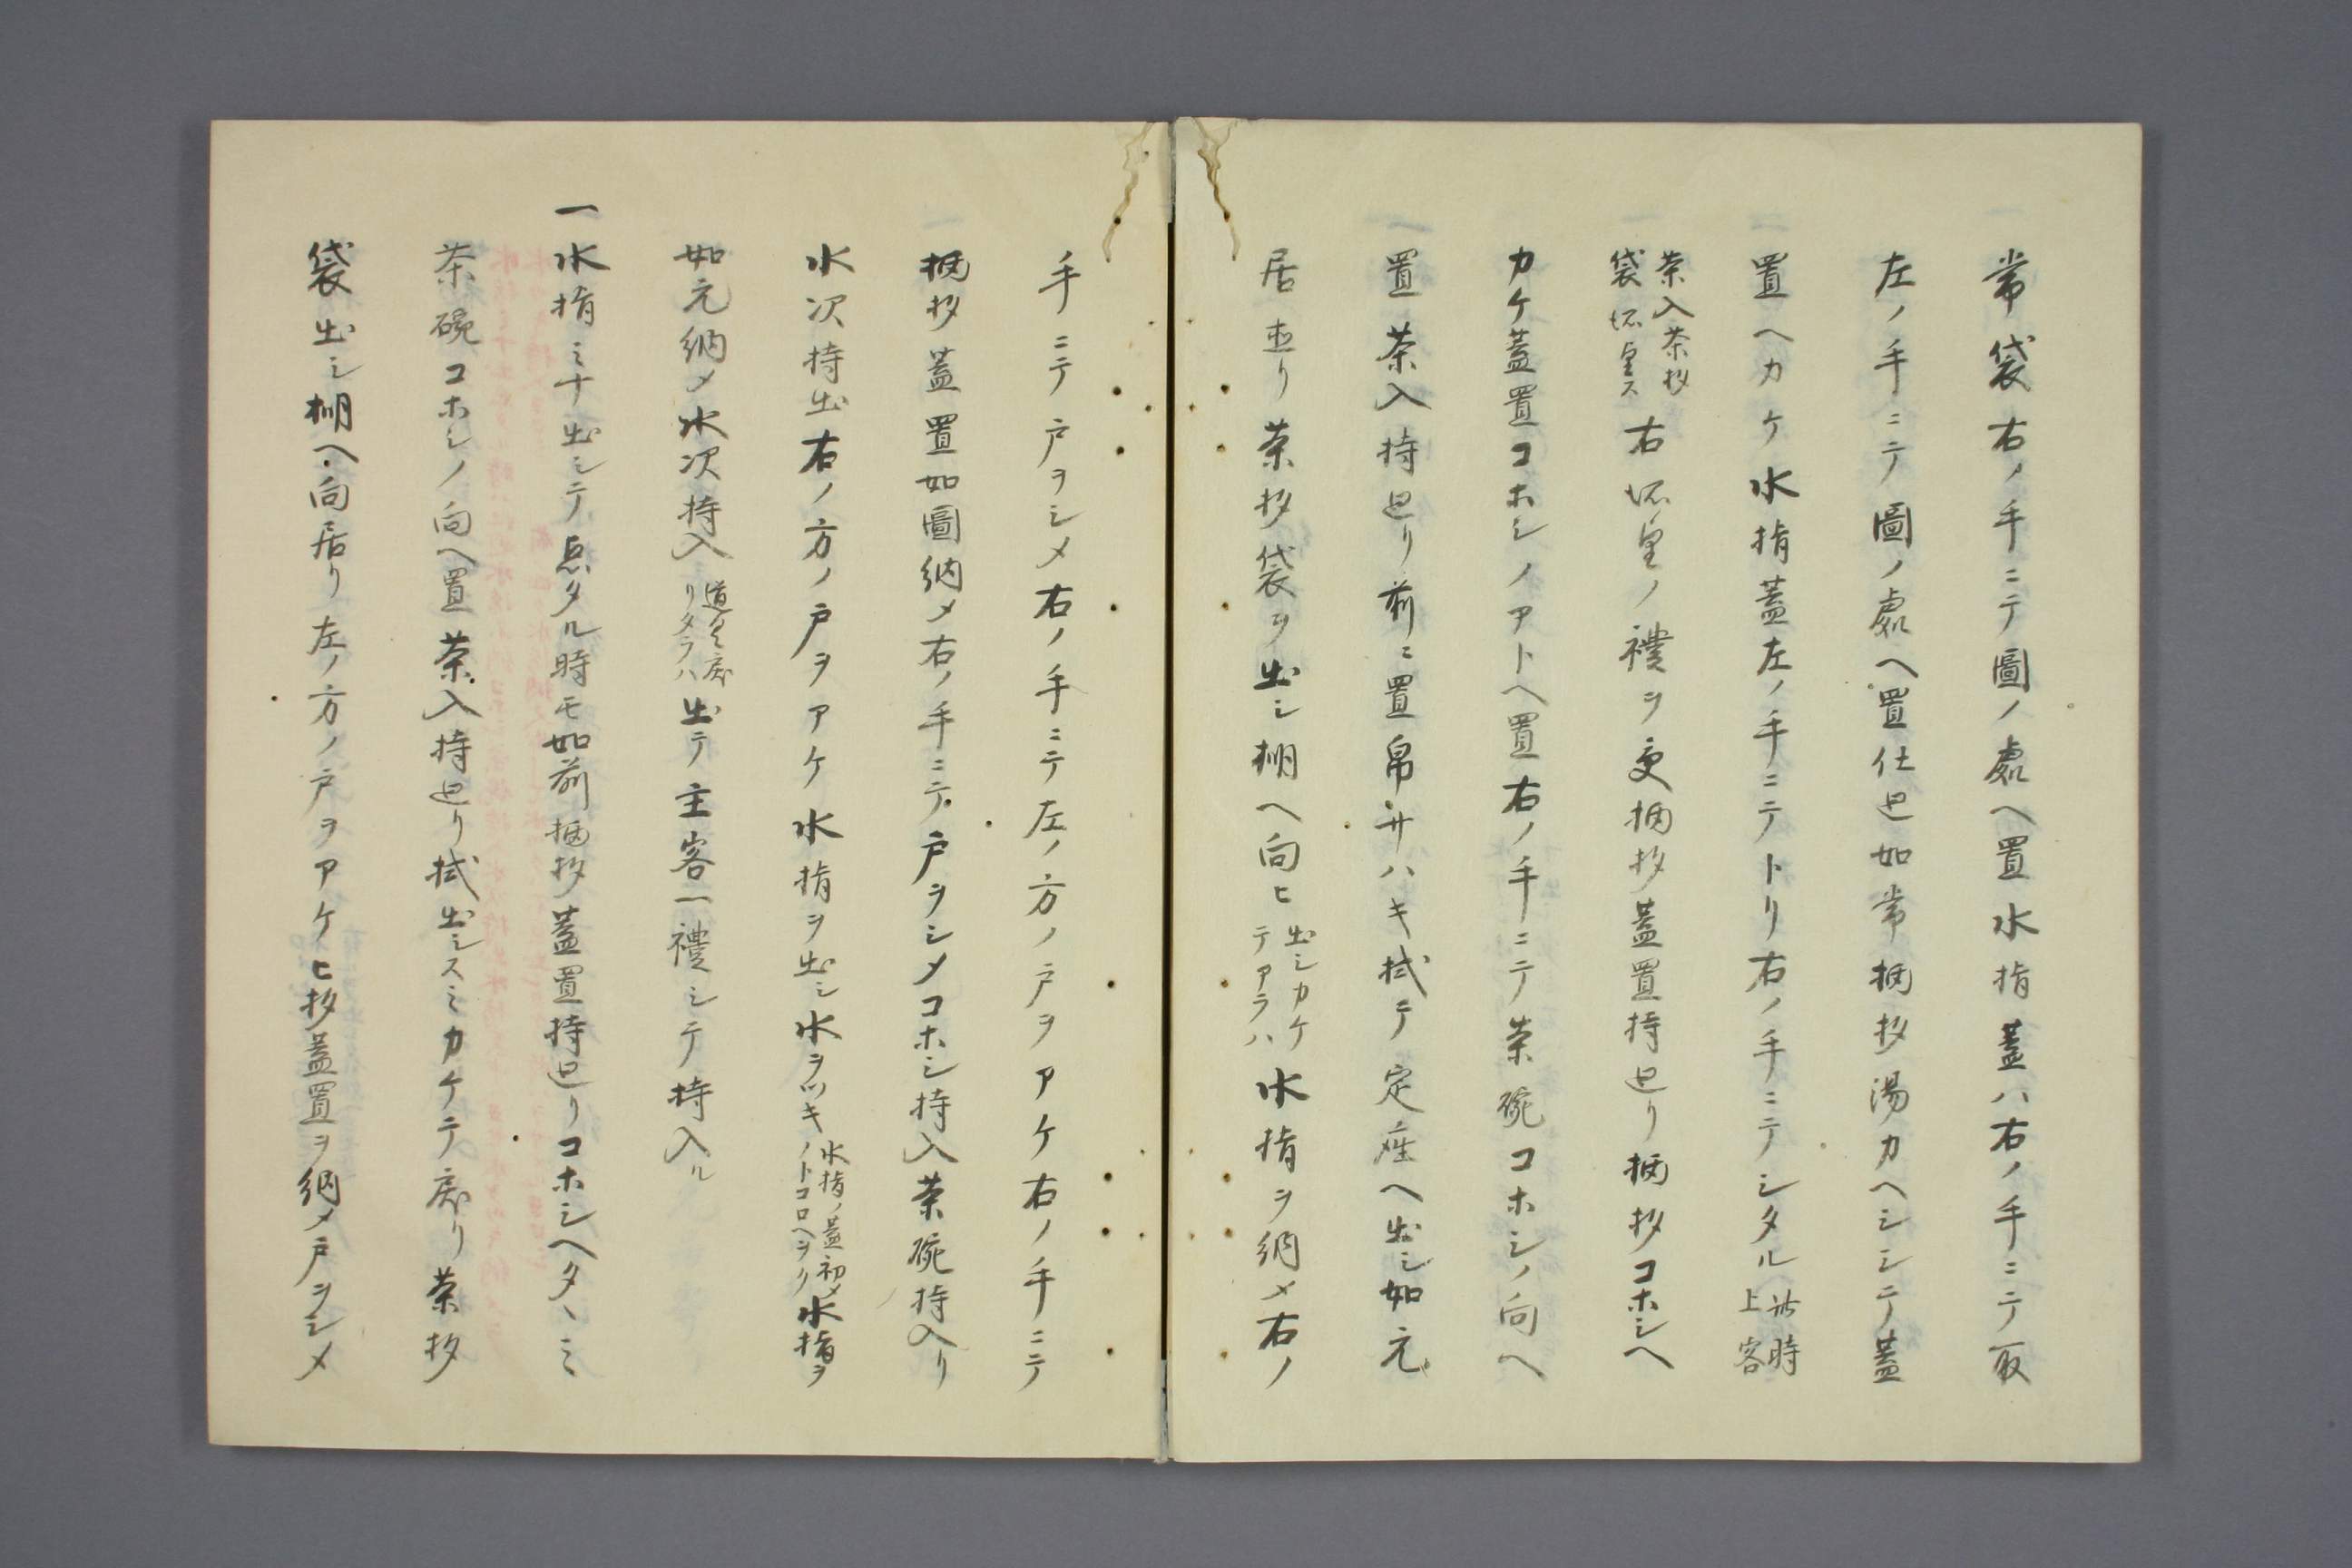 常袋右ノ手ニテ圖ノ處ヘ置水指蓋ハ右ノ手ニテ取
左ノ手ニテ圖ノ處ヘ置仕廻如常柄杓湯カヘシシテ蓋
置ヘカケ水指蓋左ノ手ニテトリ右ノ手ニテシタル此時上客
茶入茶杓袋所望ス右所望ノ禮ヲ受柄杓蓋置持廻リ柄杓コホシヘ
カケ蓋置コホシノアトヘ置右ノ手ニテ茶碗コホシノ向ヘ
置茶入持廻リ前ニ置帛サハキ拭テ定座ヘ出シ如元
居直リ茶杓袋ヲ出シ棚ヘ向ヒ出シカケテアラハ水指ヲ納メ右ノ
手ニテ戸ヲシメ右ノ手ニテ左ノ方ノ戸ヲアケ右ノ手ニテ
柄杓蓋置如圖納メ右ノ手ニテ戸ヲシメコホシ持入茶碗持入リ
水次持出右ノ方ノ戸ヲアケ水指ヲ出シ水ヲツキ水指ノ蓋初メノトコロヘヲク水指ヲ
如元納メ水次持入道具戻リタラハ出テ主客一禮シテ持入ル
一水指ミナ出シテ点タル時モ如前柄杓蓋置持廻リコホシヘタヽミ
茶碗コホシノ向ヘ置茶入持廻リ拭出シスミカケテ戻リ茶杓
袋出シ棚ヘ向居リ左ノ方ノ戸ヲアケヒ杓蓋置ヲ納メ戸ヲシメ